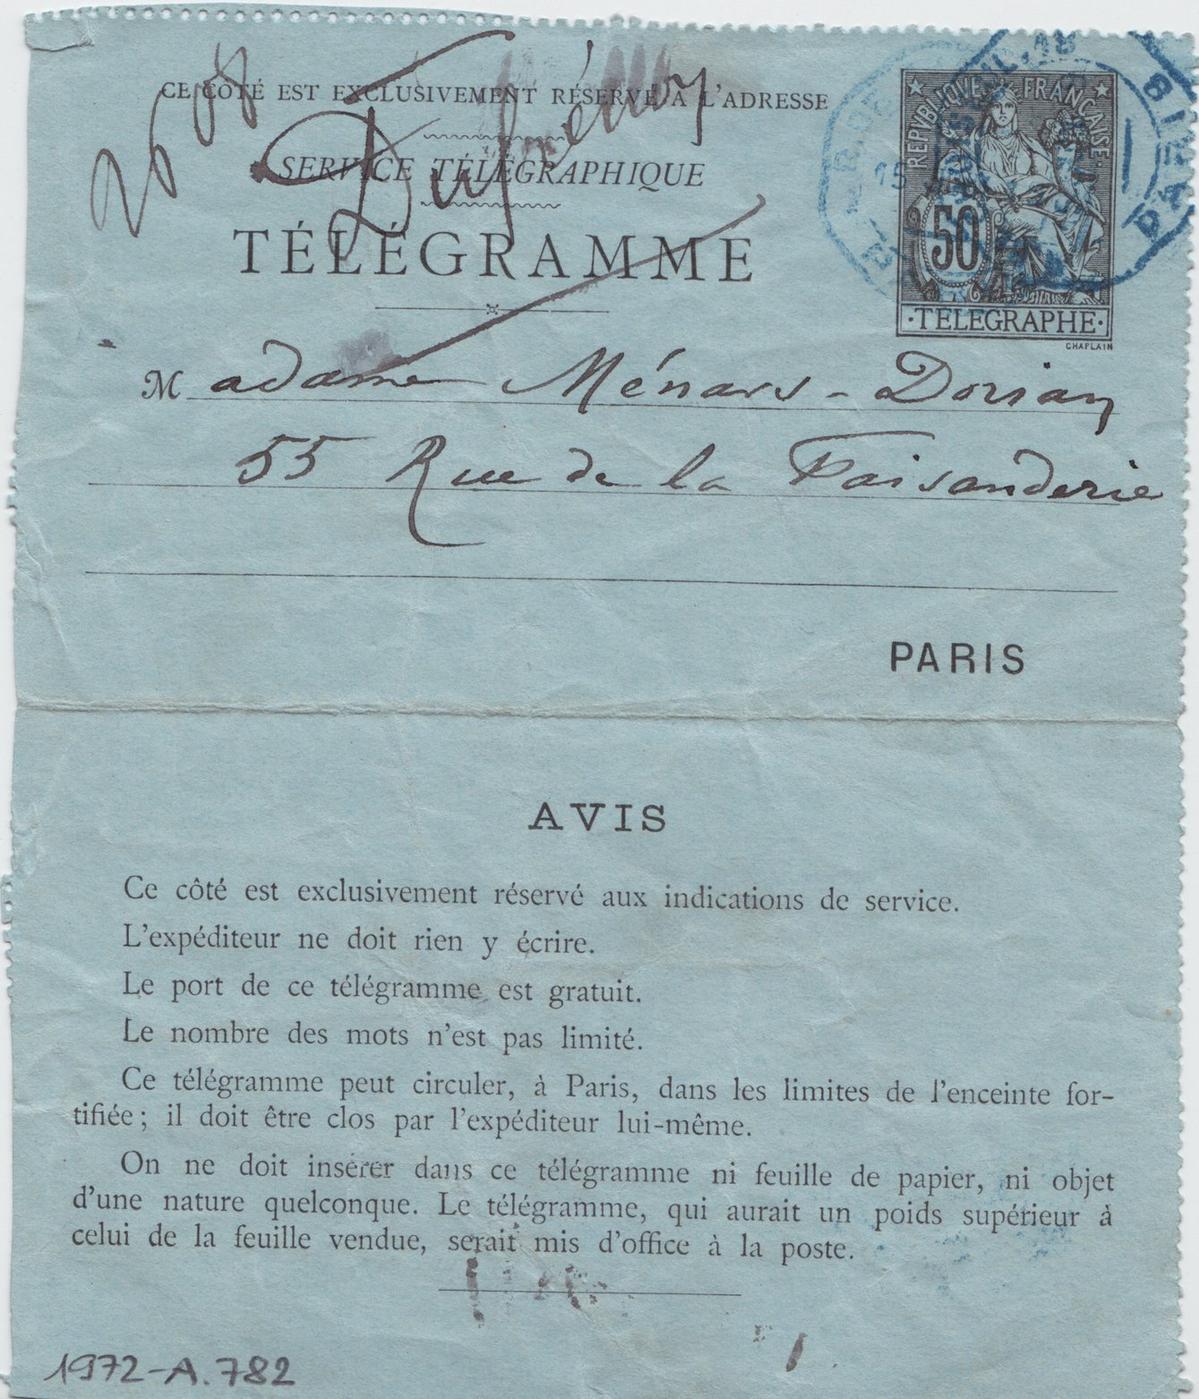 CE CÔTÉ EST EXCLUSIVEMENT RÉSERVÉ A L'ADRESSE
SERVICE TÉLÉGRAPHIQUE
TÉLÉGRAMME
RÉPUBLIQUE FRANÇAISE
50
·TÉLÉGRAPHE·
CHAPLAIN
Madame Ménars-Dorian
55 Rue de la Faisanderie
PARIS
AVIS
Ce côté est exclusivement réservé aux indications de service.
L'expéditeur ne doit rien y écrire.
Le port de ce télégramme est gratuit.
Le nombre des mots n'est pas limité.
Ce télégramme peut circuler, à Paris, dans les limites de l'enceinte for-
tifiée; il doit être clos par l'expéditeur lui-même.
On ne doit insérer dans ce télégramme ni feuille de papier, ni objet
d'une nature quelconque. Le télégramme, qui aurait un poids supérieur à
celui de la feuille vendue, serait mis d'office à la poste.
1972-A.782